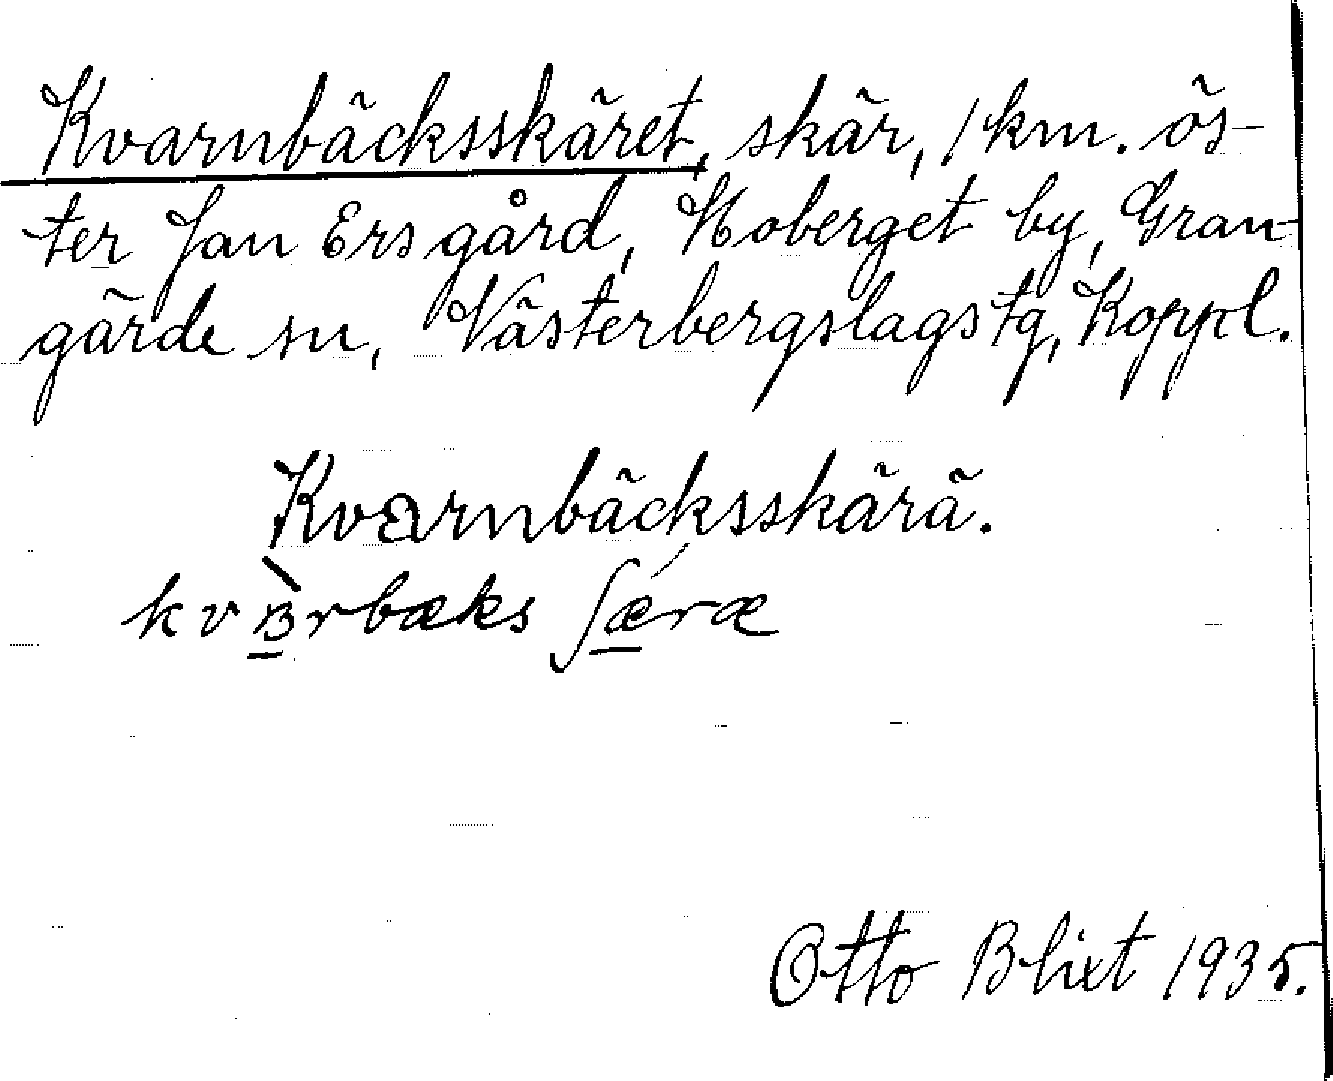 Kvarnbäcksskäret, skär, 1 km. ös-
ter Jan Ers gård, Hoberget by, Gran-
gärde sn, Västerbergslags tg, Koppl.
Kvarnbäcksskärä.
Otto Blixt 1935.